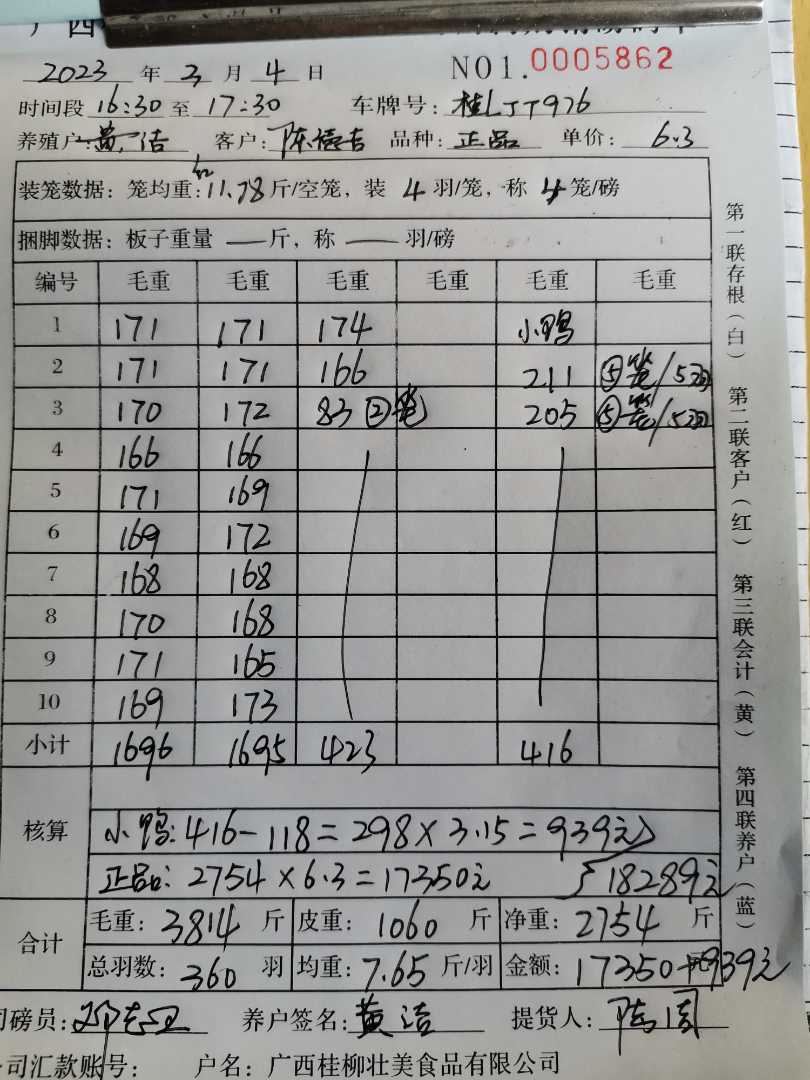 广西
2023 年 3 月 4 日 NO1.0005862
时间段 16:30 至 17:30 车牌号: 桂LJT976
养殖户: 黄洁 客户: 陈德吉 品种: 正品 单价: 6.3
装笼数据: 笼均重: 红 11.78 斤/空笼, 装 4 羽/笼, 称 4 笼/磅
捆脚数据: 板子重量 — 斤, 称 — 羽/磅
编号 毛重 毛重 毛重 毛重 毛重 毛重
1 171 171 174 小鸭
2 171 171 166 211 ⑤笼/5羽
3 170 172 83 ②笼 205 ⑤笼/5羽
4 166 166
5 171 169
6 169 172
7 168 168
8 170 168
9 171 165
10 169 173
小计 1696 1695 423 416
核算
小鸭: 416-118=298×3.15=939元
正品: 2754×6.3=17350元 18289元
合计
毛重: 3814 斤 皮重: 1060 斤 净重: 2754 斤
总羽数: 360 羽 均重: 7.65 斤/羽 金额: 17350元+939元
司磅员: 养户签名: 黄洁 提货人:
司汇款账号: 户名: 广西桂柳壮美食品有限公司
第一联存根(白) 第二联客户(红) 第三联会计(黄) 第四联养户(蓝)